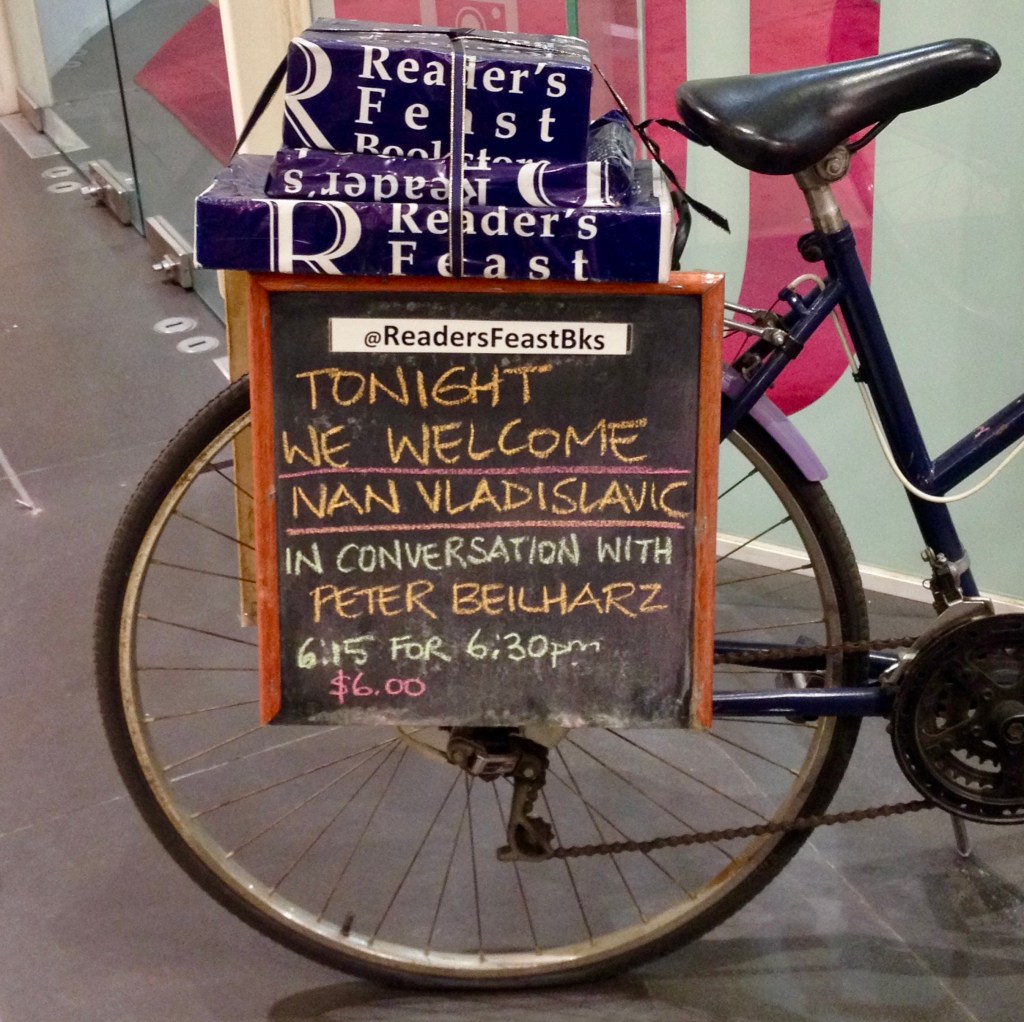 Reader's
Feast
Bookstor
Reader's
R Reader's
Feast
@ReadersFeastBks
TONIGHT
WE WELCOME
IVAN VLADISLAVIC
IN CONVERSATION WITH
PETER BEILHARZ
6:15 FOR 6:30pm
$6.00